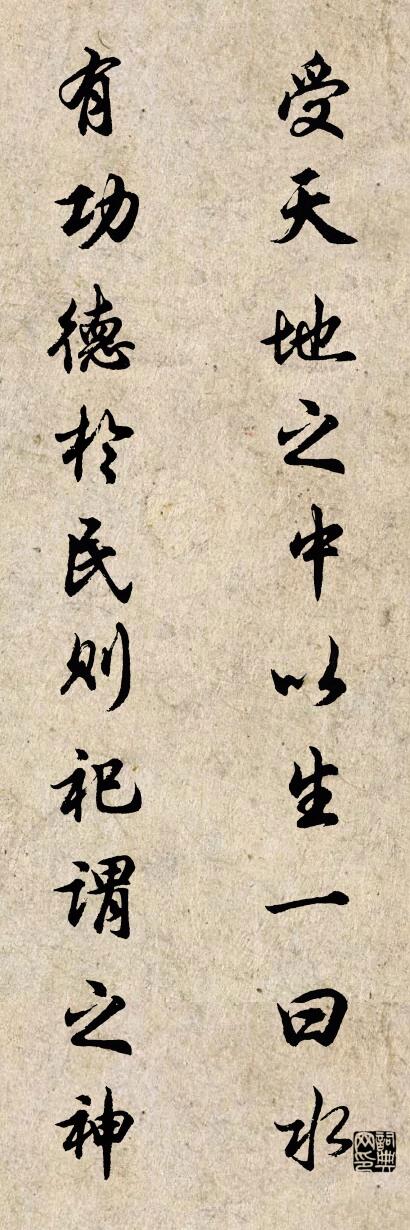 受天地之中以生一曰水
有功德於民則祀謂之神
詞典網印